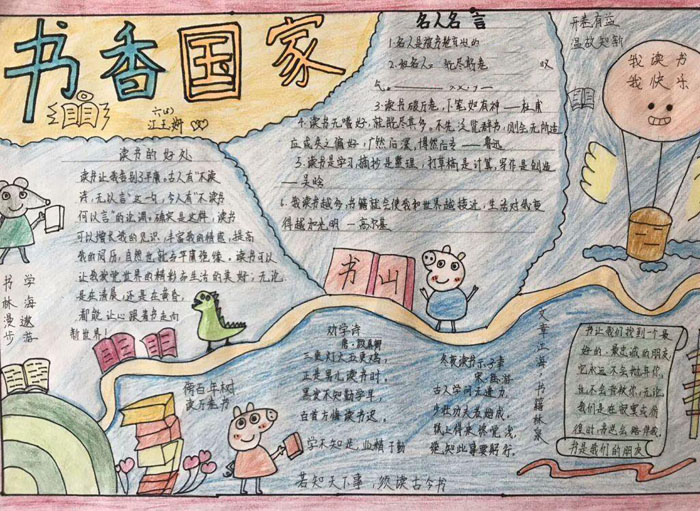 书香国家
六(4)
江玉斯
读书的好处
读书让我告别了平庸。古人有"不读
诗,无以言"这一句,今人有"不读书
何以言"的
确实是这样,读书
可以增长我的见识,丰富我的情感,提高
我的阅历,自然也就与平庸绝缘。读书可以
让我感觉世界的精彩与生活的美好;无论
是在清晨,还是在黄昏,
都能让心跟着书走向
新世界!
书林漫步
学海遨游
名人名言
1.名人是
3.读书破万卷,下笔如有神——杜甫
4.读书无嗜好,就能尽其多。不先泛览群书,则会无所适
应或失之偏好,广然后深,博然后专——鲁迅
5.读书是学习,摘抄是整理,
写作是创造
——吴晗
6.我读书越多,书籍就会使我和世界越接近,生活对我更
得越加光明 —高尔基
开卷有益
温故知新
我读书
我快乐
书山
劝学诗
唐·颜真卿
三更灯火五更鸡,
正是男儿读书时,
黑发不知勤学早,
白首方悔读书迟。
学无知足,业精于勤
倚百年树
读万卷书
冬夜读书示子聿
宋·陆游
古人学问无遗力,
少壮功夫老始成,
纸上得来终觉浅,
绝知此事要躬行。
若知天下事,须读古今书
文章江海,书籍林泉
书让我们找到一个最
好的、最忠诚的朋友,
它永远不会抛弃你,
也不会背叛你,无论
我们是在寂寞
书是我们的朋友